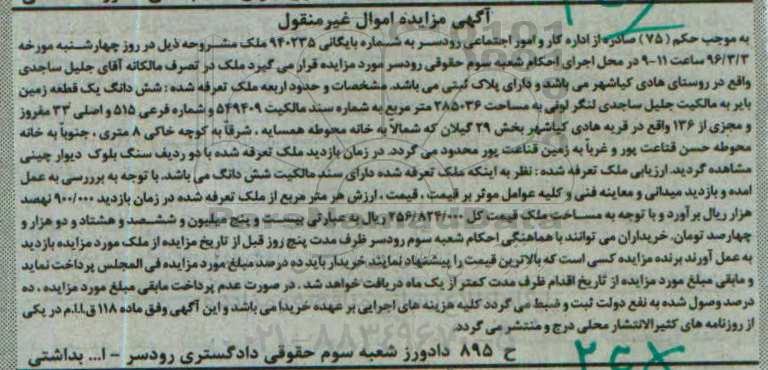 آگهی مزایده اموال غیرمنقول
به موجب حکم (۷۵) صادره از اداره کار و امور اجتماعی رودسر به شماره بایگانی ۹۴۰۲۳۵ ملک مشروحه ذیل در روز چهارشنبه مورخه
۹۶/۳/۳ ساعت ۱۱-۹ در محل اجرای احکام شعبه سوم حقوقی رودسر مورد مزایده قرار می گیرد ملک در تصرف مالکانه آقای جلیل ساجدی
واقع در روستای هادی کیاشهر می باشد و دارای پلاک ثبتی می باشد. مشخصات و حدود اربعه ملک تعرفه شده : شش دانگ یک قطعه زمین
بایر به مالکیت جلیل ساجدی لنگر لوفی به مساحت ۲۸۵۰۳۶ متر مربع به شماره سند مالکیت ۵۴۹۴۰۹ و شماره فرعی ۵۱۵ و اصلی ۳۳ مفروز
و مجزی از ۱۳۶ واقع در قریه هادی کیاشهر بخش ۲۹ گیلان که شمالاً به خانه محوطه همسایه ، شرقاً به کوچه خاکی ۸ متری ، جنوباً به خانه
محوطه حسن قناعت پور و غرباً به زمین قناعت پور محدود می گردد. در زمان بازدید ملک تعرفه شده با دو ردیف سنگ بلوک دیوار چینی
مشاهده گردید. ارزیابی ملک تعرفه شده : نظر به اینکه ملک تعرفه شده دارای سند مالکیت شش دانگ می باشد. با توجه به بررسی به عمل
امده و بازدید میدانی و معاینه فنی و کلیه عوامل موثر بر قیمت ، قیمت ، ارزش هر متر مربع از ملک تعرفه شده در زمان بازدید ۹۰۰/۰۰۰ نهصد
هزار ریال برآورد و با توجه به مساحت ملک قیمت کل ۲۵۶/۸۲۴/۰۰۰ ریال به عبارتی بیست و پنج میلیون و ششصد و هشتاد و دو هزار و
چهارصد تومان. خریداران می توانند با هماهنگی احکام شعبه سوم رودسر ظرف مدت پنج روز قبل از تاریخ مزایده از ملک مورد مزایده بازدید
به عمل آورند برنده مزایده کسی است که بالاترین قیمت را پیشنهاد نمایند خریدار باید ده درصد مبلغ مورد مزایده فی المجلس پرداخت نماید
و مابقی مبلغ مورد مزایده از تاریخ اقدام ظرف مدت کمتر از یک ماه دریافت خواهد شد . در صورت عدم پرداخت مابقی مبلغ مورد مزایده ، ده
درصد وصول شده به نفع دولت ثبت و ضبط می گردد کلیه هزینه های اجرایی بر عهده خریدا می باشد و این آگهی وفق ماده ۱۱۸ ق.ا.ا.م در یکی
از روزنامه های کثیرالانتشار محلی درج و منتشر می گردد.
ح ۸۹۵ دادورز شعبه سوم حقوقی دادگستری رودسر - ا... بداشتی